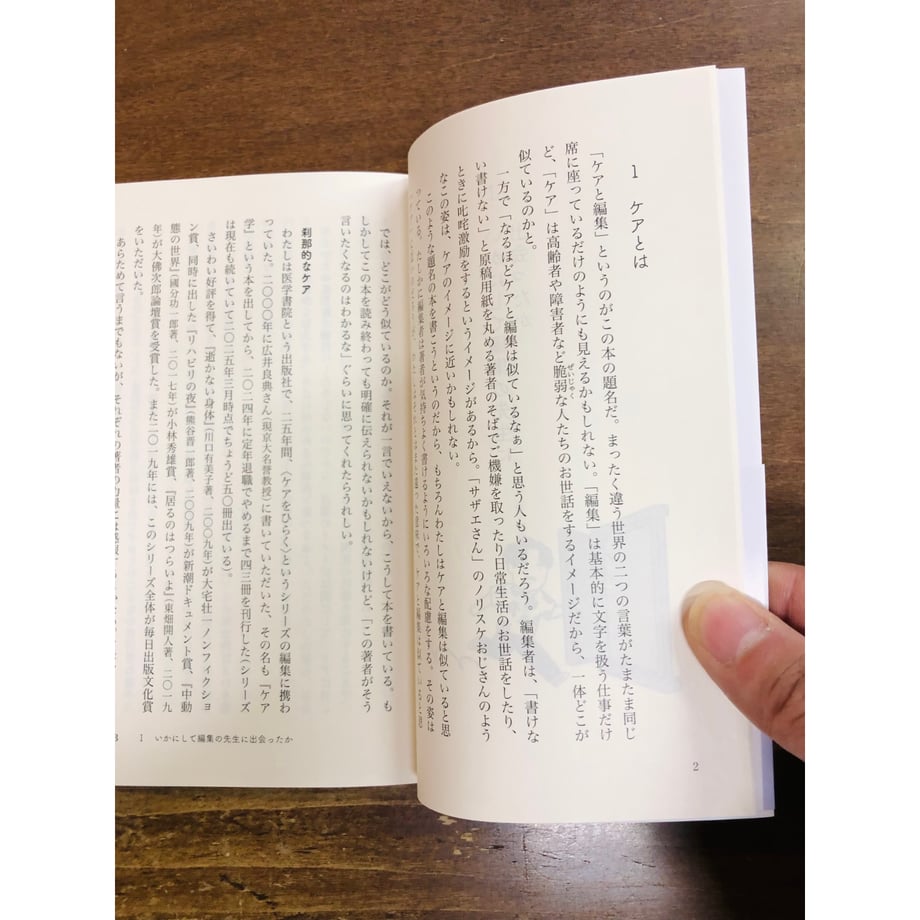 1 ケアとは
「ケアと編集」というのがこの本の題名だ。まったく違う世界の二つの言葉がたまたま同じ
席に座っているだけのようにも見えるかもしれない。「編集」は基本的に文字を扱う仕事だけ
ど、「ケア」は高齢者や障害者など脆弱な人たちのお世話をするイメージだから、一体どこが
ぜいじゃく
似ているのかと。
一方で「なるほどケアと編集は似ているなぁ」と思う人もいるだろう。編集者は、「書けな
い書けない」と原稿用紙を丸める著者のそばでご機嫌を取ったり日常生活のお世話をしたり、
ときに叱咤激励をするというイメージがあるから。「サザエさん」のノリスケおじさんのよう
なこの姿は、ケアのイメージに近いかもしれない。
このような題名の本を書こうというのだから、もちろんわたしはケアと編集は似ていると思
っている。たしかに編集者は著者が気持ちよく書けるようにいろいろな配慮をする。その姿は
2
では、どこがどう似ているのか。それが一言でいえないから、こうして本を書いている。も
しかしてこの本を読み終わっても明確に伝えられないかもしれないけれど、「この著者がそう
言いたくなるのはわかるな」ぐらいに思ってくれたらうれしい。
刹那的なケア
わたしは医学書院という出版社で、二五年間、〈ケアをひらく〉というシリーズの編集に携わ
っていた。二〇〇〇年に広井良典さん(現京大名誉教授)に書いていただいた、その名も『ケア
学』という本を出してから、二〇二四年に定年退職でやめるまで四三冊を刊行した(シリーズ
は現在も続いていて二〇二五年三月時点でちょうど五〇冊出ている)。
さいわい好評を得て、『逝かない身体』(川口有美子著、二〇〇九年)が大宅壮一ノンフィクショ
ン賞、同時に出した『リハビリの夜』(熊谷晋一郎著、二〇〇九年)が新潮ドキュメント賞、『中動
態の世界』(國分功一郎著、二〇一七年)が小林秀雄賞、『居るのはつらいよ』(東畑開人著、二〇一九
年)が大佛次郎論壇賞を受賞した。また二〇一九年には、このシリーズ全体が毎日出版文化賞
をいただいた。
あらためて言うまでもないが、それぞれの著者の力量には
3 1 いかにして編集の先生に出会ったか